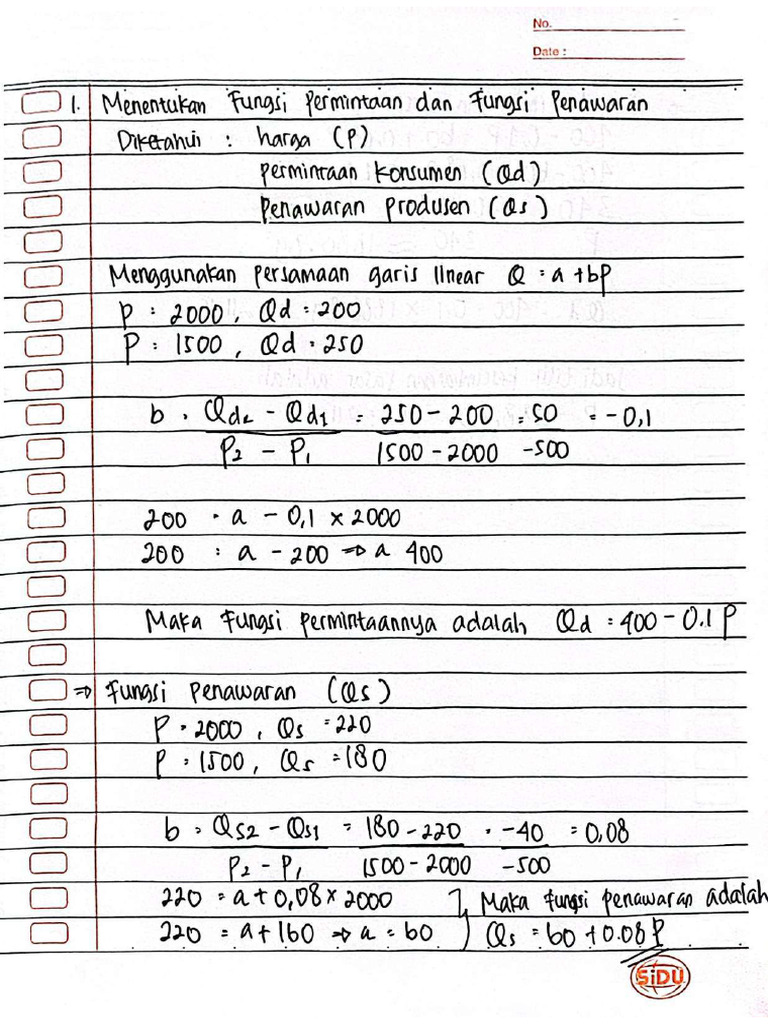 No.
Date :
1. Menentukan Fungsi Permintaan dan Fungsi Penawaran
Diketahui : harga (P)
permintaan konsumen (Qd)
Penawaran Produsen (Qs)
Menggunakan persamaan garis linear Q = a + bP
P = 2000, Qd = 200
P = 1500, Qd = 250
b = Qd2 - Qd1 = 250 - 200 = 50 = -0,1
P2 - P1 1500 - 2000 -500
200 = a - 0,1 x 2000
200 = a - 200 ⇒ a 400
Maka Fungsi permintaannya adalah Qd = 400 - 0.1 P
⇒ Fungsi Penawaran (Qs)
P = 2000, Qs = 220
P = 1500, Qs = 180
b = Qs2 - Qs1 = 180 - 220 = -40 = 0,08
P2 - P1 1500 - 2000 -500
220 = a + 0,08 x 2000 } Maka fungsi penawaran adalah
220 = a + 160 ⇒ a = 60 } Qs = 60 + 0.08 P
SiDU